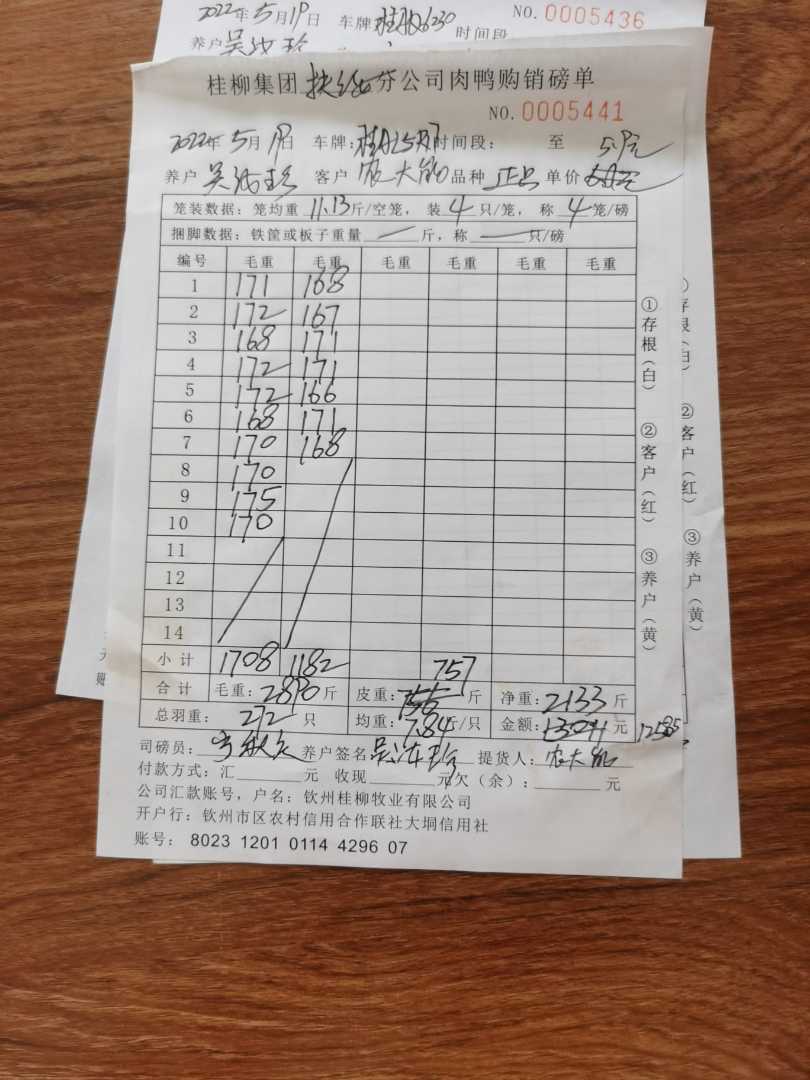 2022年5月19日 车牌 6230 时间段 NO.0005436
养户
桂柳集团 分公司肉鸭购销磅单
NO.0005441
2022年5月19日 车牌: 时间段: 至 5.9元
养户 吴 珍 客户 农大 品种 正品 单价
笼装数据: 笼均重 11.13斤/空笼, 装4只/笼, 称4笼/磅
捆脚数据: 铁筐或板子重量 斤,称 只/磅
编号 毛重 毛重 毛重 毛重 毛重 毛重
1 171 168
2 172 167
3 168 171
4 172 171
5 172 166
6 168 171
7 170 168
8 170
9 175
10 170
11
12
13
14
小计 1708 1182 757
合计 毛重:2890斤 皮重: 斤 净重:2133斤
总羽重: 272只 均重:7.84斤/只 金额: 元 12585
司磅员: 养户签名 吴 珍 提货人: 农大
付款方式: 汇 元 收现 元欠(余): 元
公司汇款账号,户名: 钦州桂柳牧业有限公司
开户行: 钦州市区农村信用合作联社大垌信用社
账号: 8023 1201 0114 4296 07
①存根(白) ②客户(红) ③养户(黄)
②客户(红) ③养户(黄)